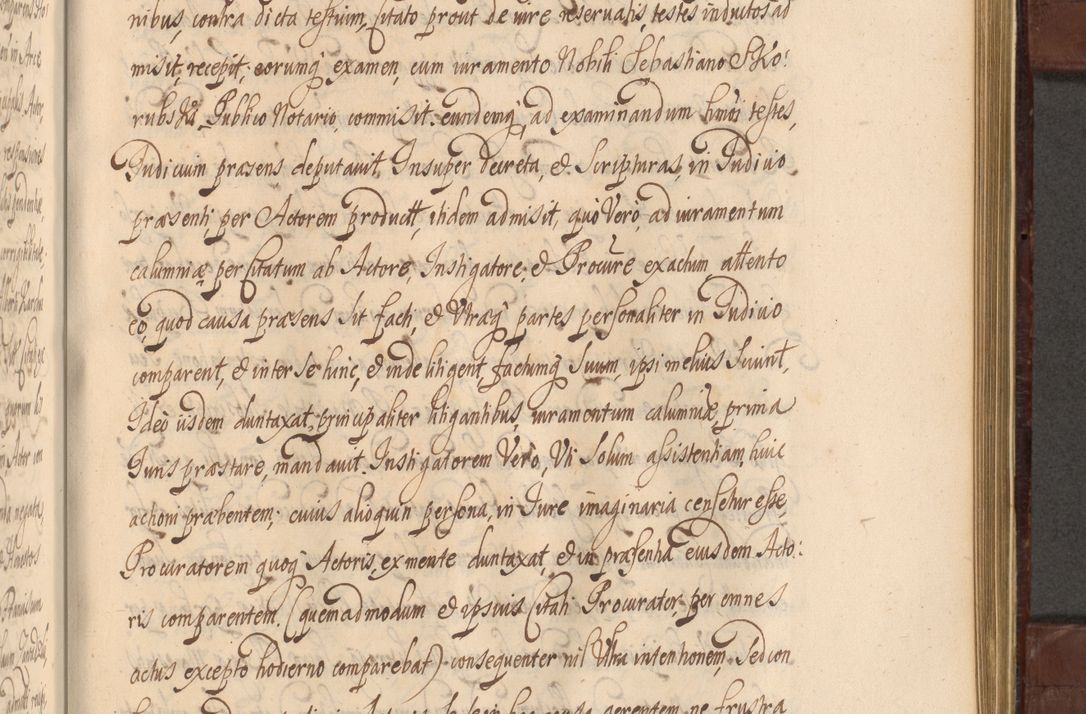 nibus, contra dicta testium, citato prout de iure reservatis, testes inductos ad
misit, recepit, eorumq̃ examen, cum iuramento Nobili Sebastiano Sko:
rubski Publico Notario, commisit. eundemq̃, ad examinandum hm̃oi testes,
Iudicium præsens deputavit. Insuper decreta, et Scripturas, in Iudicio
præsenti, per Actorem productt, itidem admisit, quo Verò, ad iuramentum
calumniæ, per Citatum ab Actore, Instigatore, et Procũre exactum, attento
eò, quod causa præsens sit facti, et Vtraq̃ partes personaliter in Iudicio
comparent, et inter se hinc, et inde litigent, factumq̃ Suum, ipsi melius Sciunt,
Ideò iisdem duntaxat, principaliter litigantibus, iuramentum calumniæ, prima
Iuris præstare, mandavit. Instigatorem Verò, Vti Solum assistentiam, huic
actioni præbentem, cuius alioquin persona, in Iure imaginaria censetur esse,
Procuratorem quoq̃ Actoris, ex mente duntaxat, et in præsentia eiusdem Acto:
ris comparentem, (quemadmodum et ipsius Citati Procurater per omnes
actus excepto hodierno comparebat) consequenter nil Vltra intentionem, Sed con